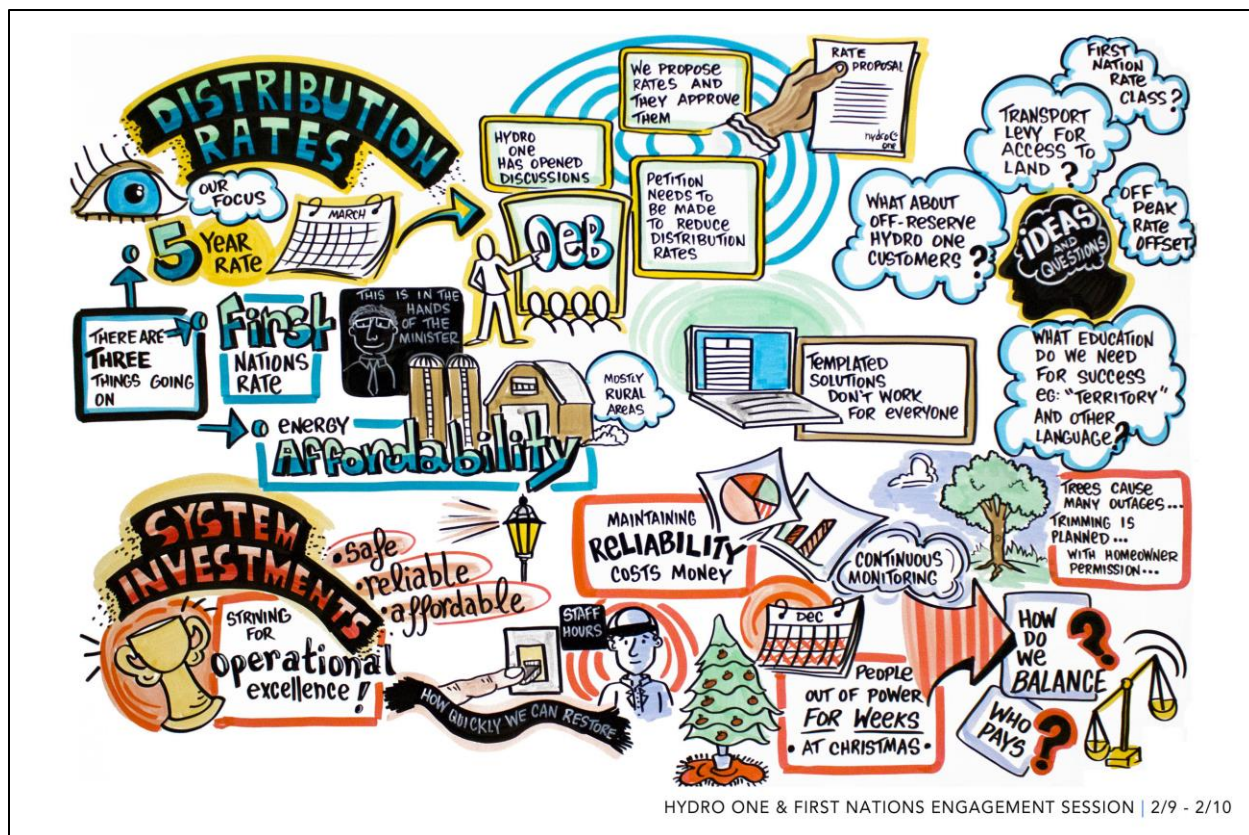 DISTRIBUTION
RATES
OUR
FOCUS
5 YEAR
RATE
MARCH
THERE ARE
THREE
THINGS GOING
ON
First
NATIONS
RATE
THIS IS IN THE
HANDS
OF THE
MINISTER
ENERGY
Affordability
MOSTLY
RURAL
AREAS
HYDRO
ONE
HAS OPENED
DISCUSSIONS
OEB
WE PROPOSE
RATES AND
THEY APPROVE
THEM
RATE
PROPOSAL
hydro
one
PETITION
NEEDS TO
BE MADE
TO REDUCE
DISTRIBUTION
RATES
FIRST
NATION
RATE
CLASS?
TRANSPORT
LEVY FOR
ACCESS TO
LAND?
WHAT ABOUT
OFF-RESERVE
HYDRO ONE
CUSTOMERS?
OFF
PEAK
RATE
OFFSET
IDEAS
AND
QUESTIONS
WHAT EDUCATION
DO WE NEED
FOR SUCCESS
EG: "TERRITORY"
AND OTHER
LANGUAGE?
TEMPLATED
SOLUTIONS
DON'T WORK
FOR EVERYONE
SYSTEM
INVESTMENTS
• safe
• reliable
• affordable
STRIVING
FOR
Operational
excellence!
HOW QUICKLY WE CAN RESTORE
STAFF
HOURS
MAINTAINING
RELIABILITY
COSTS MONEY
CONTINUOUS
MONITORING
TREES CAUSE
MANY OUTAGES...
TRIMMING IS
PLANNED...
WITH HOMEOWNER
PERMISSION...
DEC
PEOPLE
OUT OF POWER
FOR WEEKS
• AT CHRISTMAS •
HOW
DO
WE
BALANCE?
WHO
PAYS?
HYDRO ONE & FIRST NATIONS ENGAGEMENT SESSION | 2/9 - 2/10